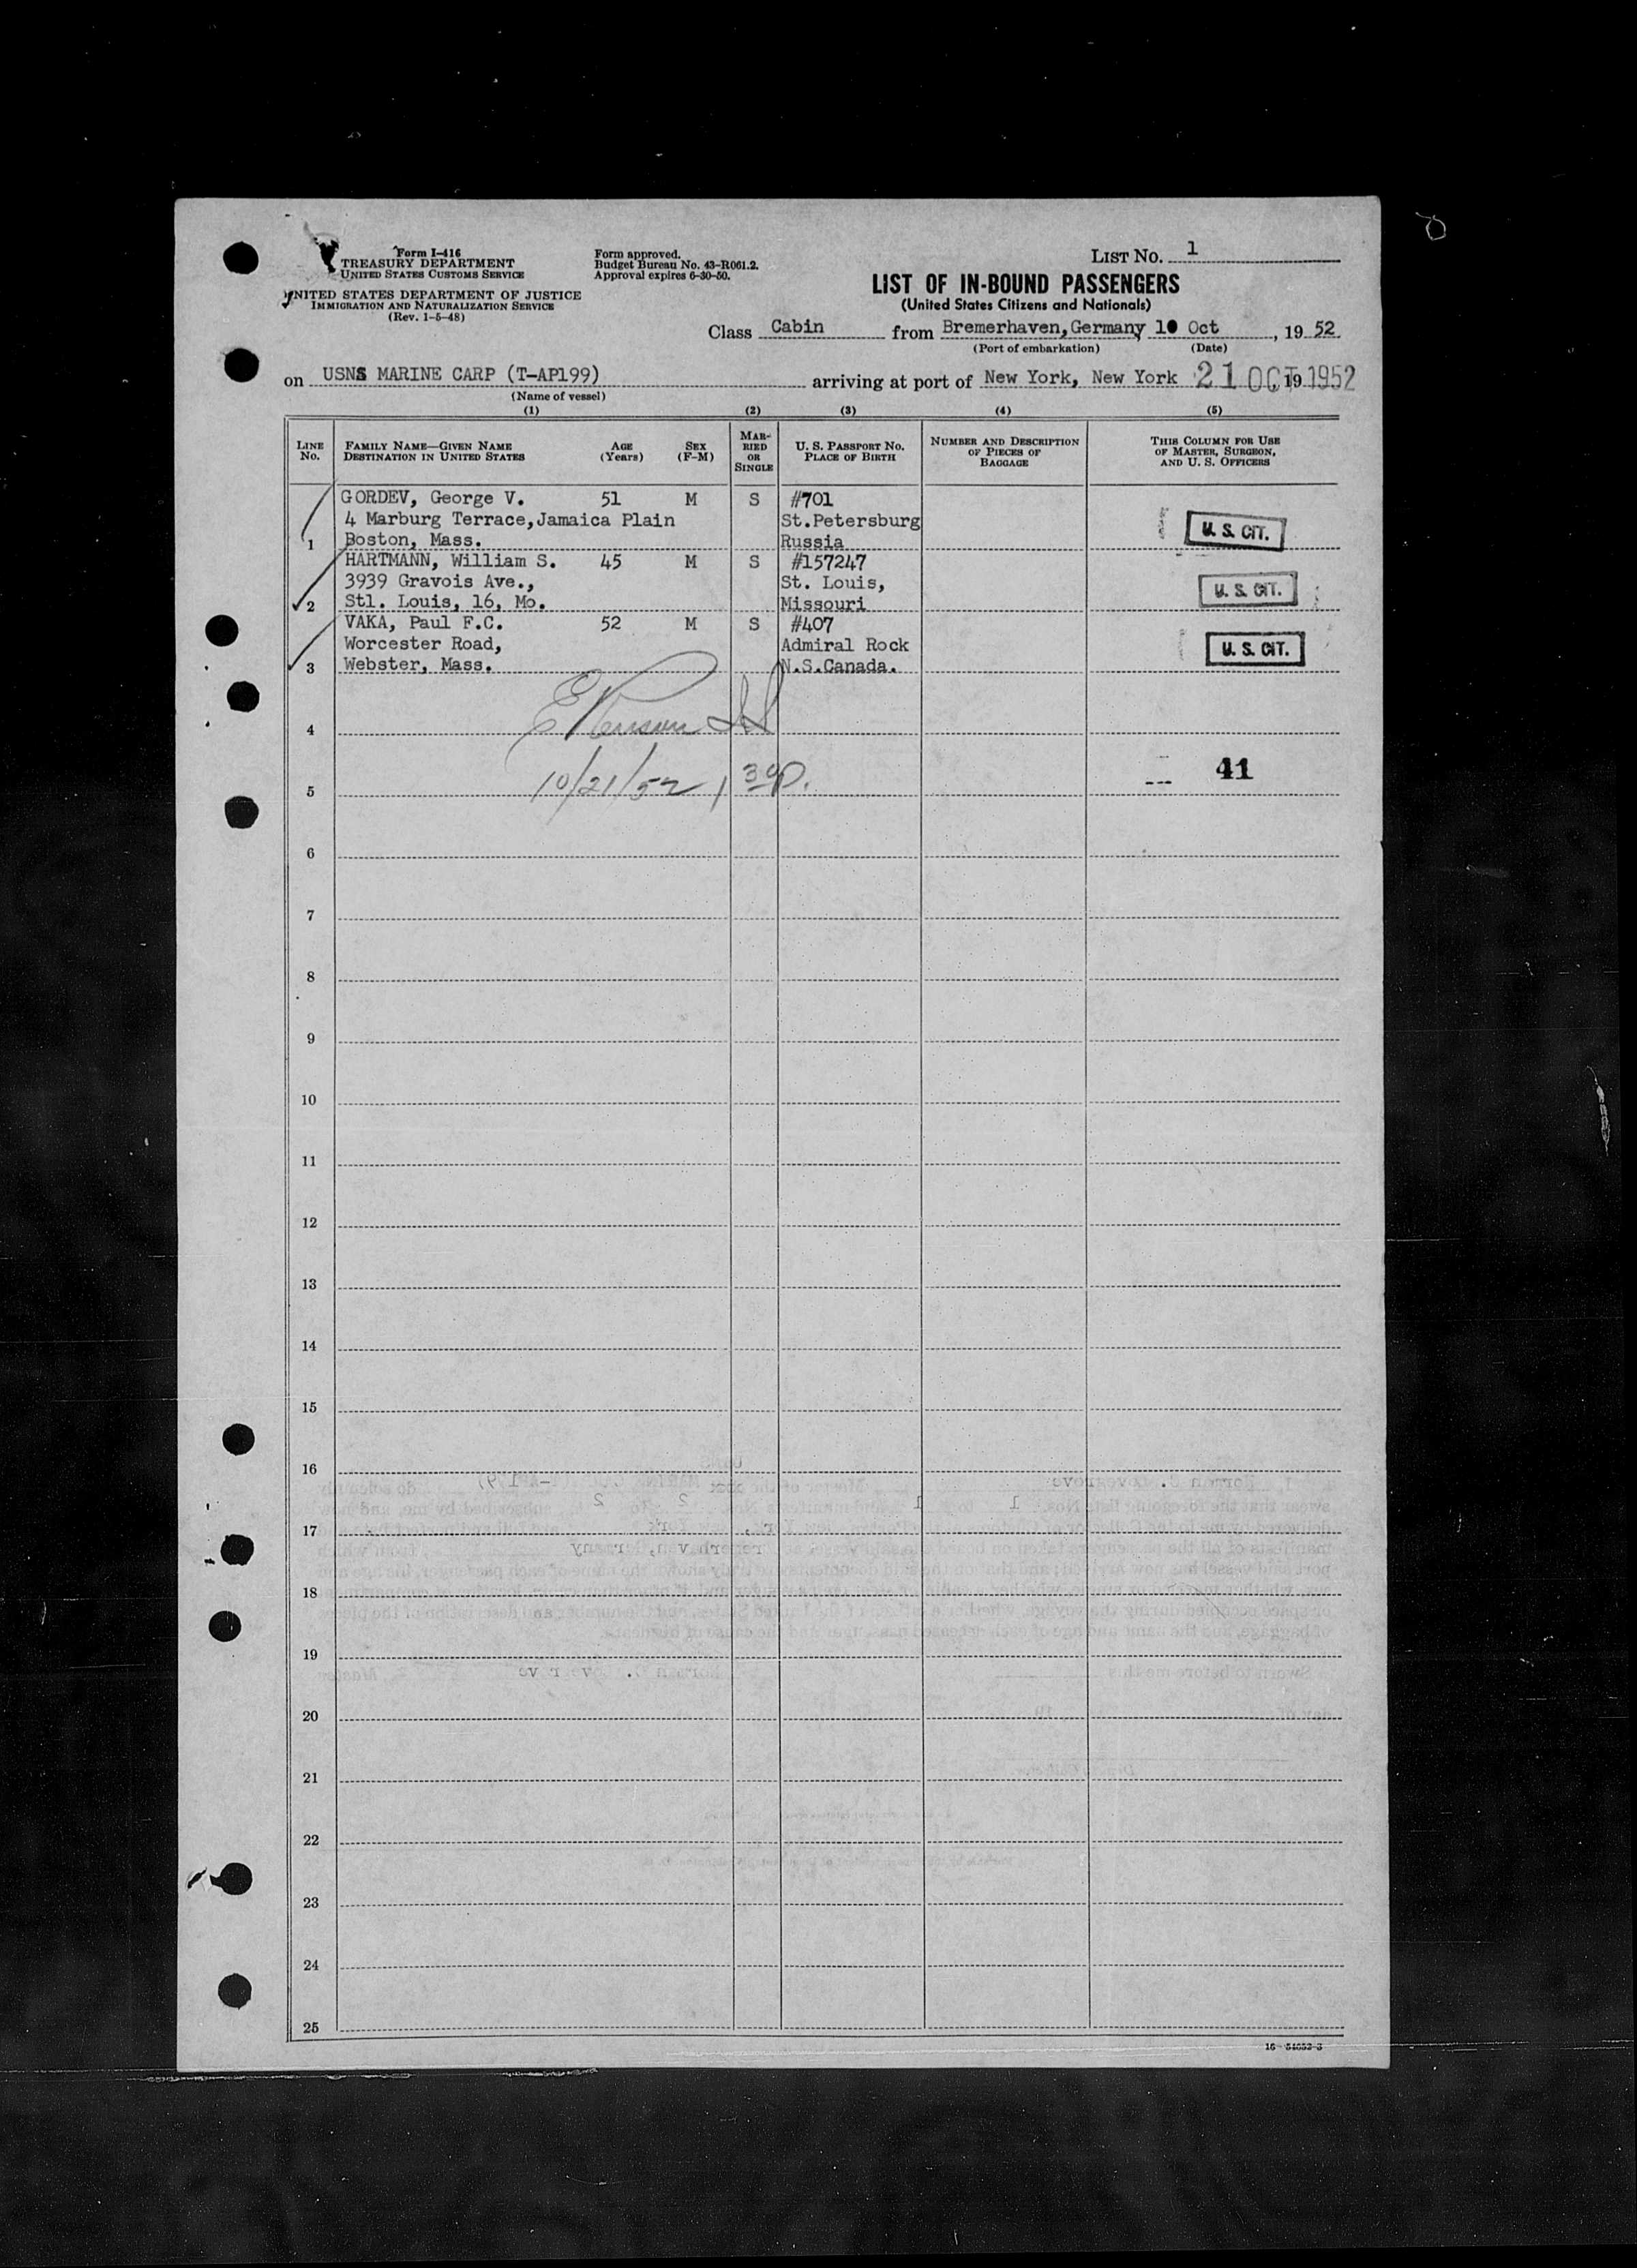 Form I-416
TREASURY DEPARTMENT
UNITED STATES CUSTOMS SERVICE
UNITED STATES DEPARTMENT OF JUSTICE
IMMIGRATION AND NATURALIZATION SERVICE
(Rev. 1-5-48)
Form approved.
Budget Bureau No. 43-R061.2.
Approval expires 6-30-50.
LIST NO. 1
LIST OF IN-BOUND PASSENGERS
(United States Citizens and Nationals)
Class Cabin from Bremerhaven, Germany 10 Oct, 19 52
(Port of embarkation) (Date)
on USNS MARINE CARP (T-AP199) arriving at port of New York, New York 21 OCT, 19 1952
(Name of vessel)
(1) (2) (3) (4) (5)
LINE NO. FAMILY NAME—GIVEN NAME DESTINATION IN UNITED STATES AGE (Years) SEX (F-M) MARRIED OR SINGLE U. S. PASSPORT NO. PLACE OF BIRTH NUMBER AND DESCRIPTION OF PIECES OF BAGGAGE THIS COLUMN FOR USE OF MASTER, SURGEON, AND U. S. OFFICERS
GORDEV, George V. 51 M S #701
4 Marburg Terrace, Jamaica Plain St.Petersburg U. S. CIT.
1 Boston, Mass. Russia
HARTMANN, William S. 45 M S #157247
3939 Gravois Ave., St. Louis, U. S. CIT.
2 Stl. Louis, 16, Mo. Missouri
VAKA, Paul F.C. 52 M S #407
Worcester Road, Admiral Rock U. S. CIT.
3 Webster, Mass. N.S.Canada.
4
10/21/52 1 30 p. 41
5
6
7
8
9
10
11
12
13
14
15
16
17
18
19
20
21
22
23
24
25